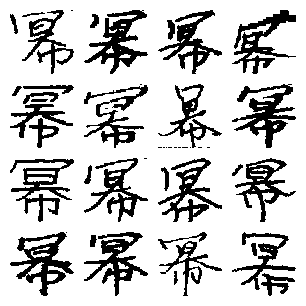 幂幂幂幂
幂幂幂幂
幂幂幂幂
幂幂幂幂